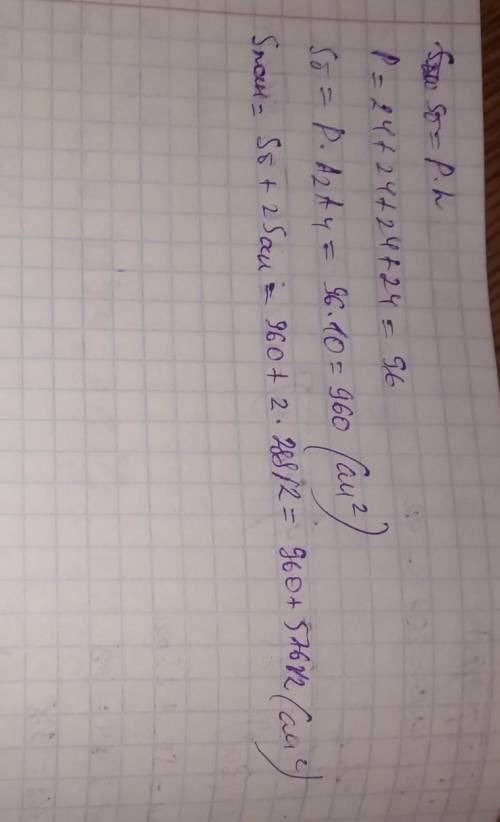 Sб = P · h
P = 24 + 24 + 24 + 24 = 96
Sб = P · A₂A₄ = 96 · 10 = 960 (см²)
Sполн = Sб + 2Sосн = 960 + 2 · 288√2 = 960 + 576√2 (см²)